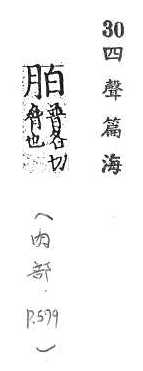 30四聲篇海
胉普各切
脅也
(肉部. P.599)